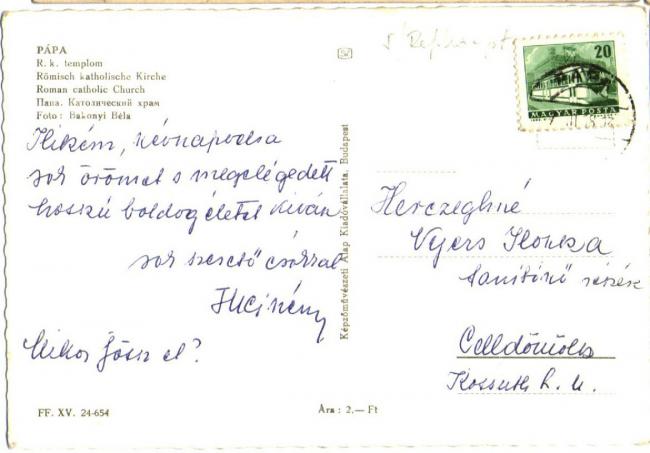 PÁPA
R. k. templom
Römisch katholische Kirche
Roman catholic Church
Папа. Католический храм
Foto: Bakonyi Béla
Ilikém, névnapodra
sok örömet s megelégedett
hosszú boldog életet kíván
sok szerető csókkal
Mikor jössz el?
FF. XV. 24-654
Ára: 2.— Ft
Képzőművészeti Alap Kiadóvállalata, Budapest
20
MAGYAR POSTA
Herczeghné
Vyers Ilonka
tanítónő részére
Celldömölk
Kossuth L. u.